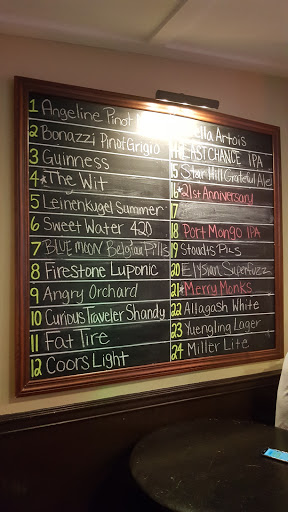 1 Angeline Pinot
2 Bonazzi Pinot Grigio
3 Guinness
4 *The Wit
5 Leinenkugel Summer
6 Sweet Water 420
7 Blue moon Belgian Pills
8 Firestone Luponic
9 Angry Orchard
10 Curious Traveler Shandy
11 Fat Tire
12 Coors Light
Artois
LAST CHANCE IPA
Star Hill Grateful Ale
16 *21st Anniversary
17
18 Port Mongo IPA
19 Stoudts Pils
20 Elysian Superfuzz
21 *Merry Monks
22 Allagash White
23 Yuengling Lager
24 Miller Lite